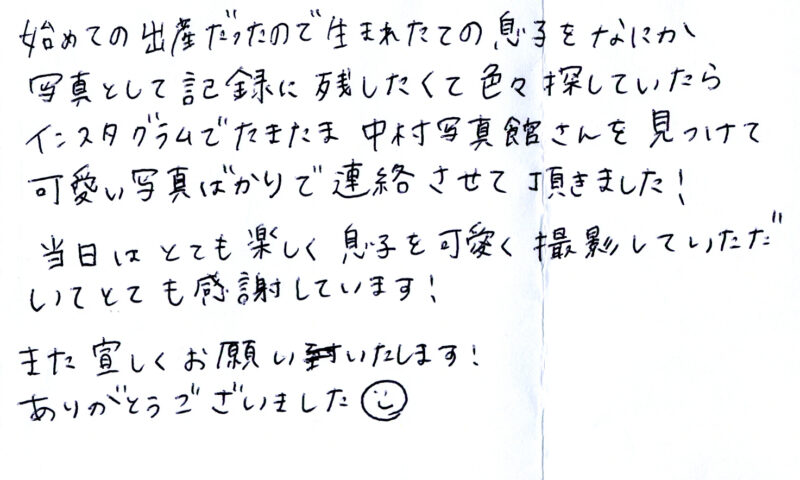 始めての出産だったので生まれたての息子をなにか
写真として記録に残したくて色々探していたら
インスタグラムでたまたま中村写真館さんを見つけて
可愛い写真ばかりで連絡させて頂きました!
当日はとても楽しく息子を可愛く撮影していただ
いてとても感謝しています!
また宜しくお願いいたします!
ありがとうございました